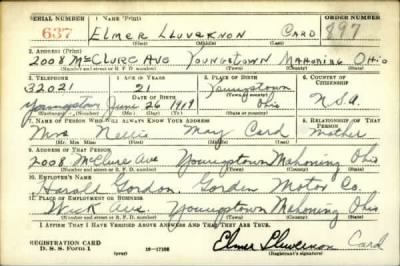 SERIAL NUMBER 1. NAME (Print) ORDER NUMBER
637 ELMER LLUVERNON CARD 897
(First) (Middle) (Last)
2. ADDRESS (Print)
2008 McCLURE AVE YOUNGSTOWN MAHONING OHIO
(Number and street or R. F. D. number) (Town) (County) (State)
3. TELEPHONE 4. AGE IN YEARS 5. PLACE OF BIRTH 6. COUNTRY OF CITIZENSHIP
32021 21 Youngstown
DATE OF BIRTH (Town or county)
Youngstown June 26 1919 Ohio U.S.A.
(Exchange) (Mo.) (Day) (Yr.) (State or country)
7. NAME OF PERSON WHO WILL ALWAYS KNOW YOUR ADDRESS 8. RELATIONSHIP OF THAT PERSON
Mrs Nellie May Card Mother
(Mr. Mrs. Miss) (First) (Middle) (Last)
9. ADDRESS OF THAT PERSON
2008 McClure Ave Youngstown Mahoning Ohio
(Number and street or R. F. D. number) (Town) (County) (State)
10. EMPLOYER'S NAME
Harold Gordon. Gordon Motor Co.
11. PLACE OF EMPLOYMENT OR BUSINESS
Wick Ave. Youngstown Mahoning Ohio
(Number and street or R. F. D. number) (Town) (County) (State)
I AFFIRM THAT I HAVE VERIFIED ABOVE ANSWERS AND THAT THEY ARE TRUE.
Elmer Lluvernon Card
REGISTRATION CARD
D. S. S. Form 1 16-17105 (Registrant's signature)